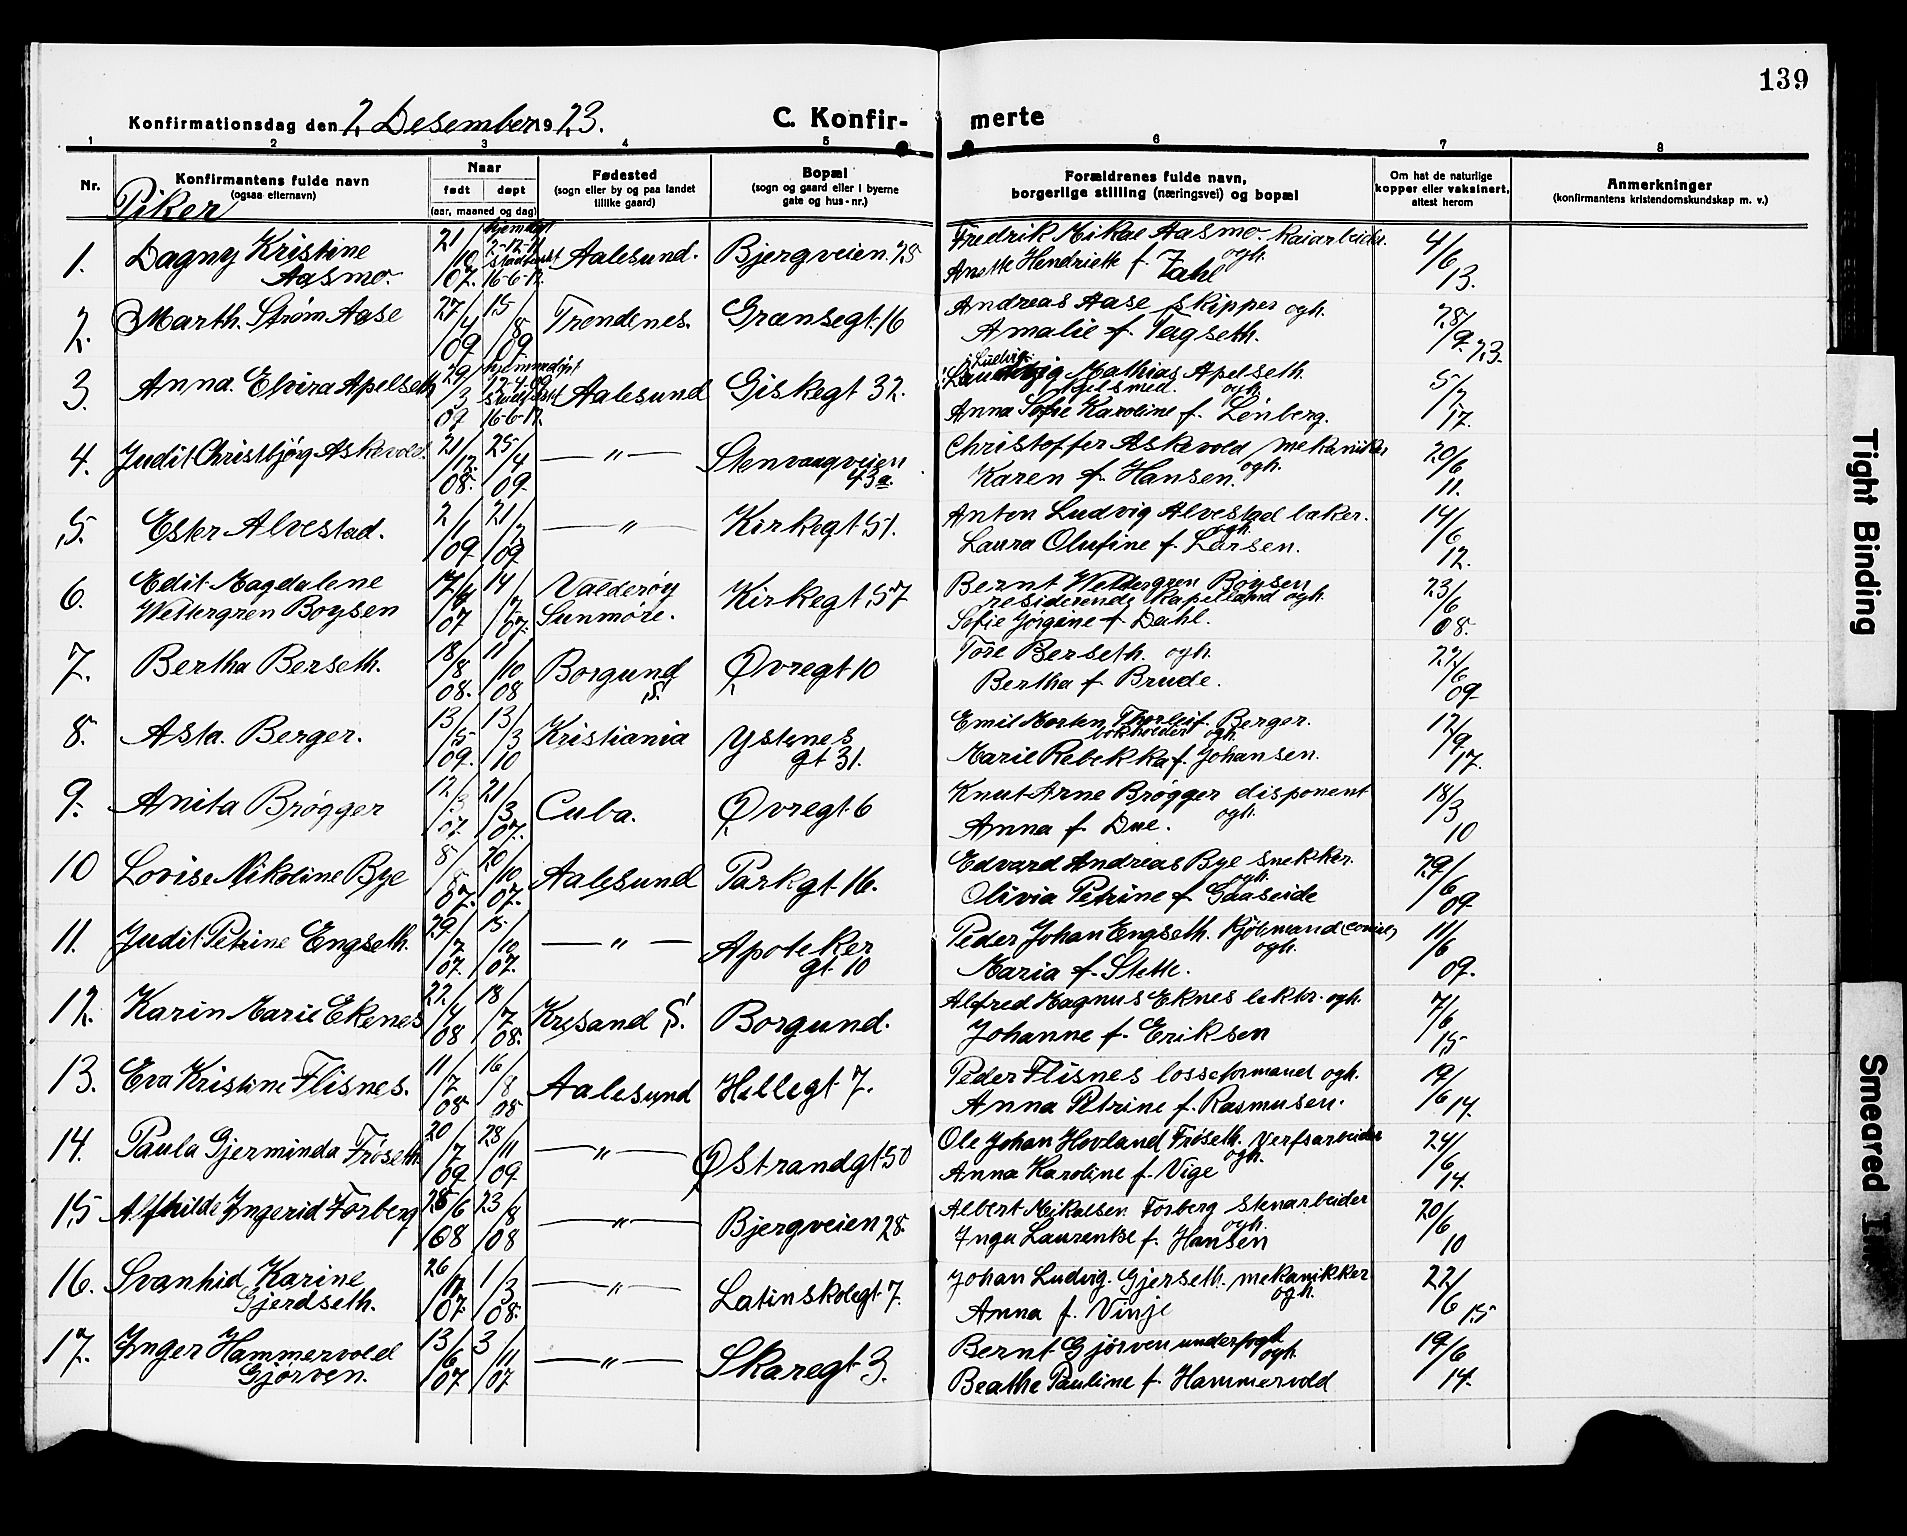 139
Konfirmationsdag den 2 Desember 1923.
C. Konfirmerte
1 2 3 4 5 6 7 8
Nr.
Konfirmantens fulde navn
(ogsaa efternavn)
Piker
Naar
født døpt
(aar, maaned og dag)
Fødested
(sogn eller by og paa landet
tillike gaard)
Bopæl
(sogn og gaard eller i byerne
gate og hus-nr.)
Forældrenes fulde navn,
borgerlige stilling (næringsvei) og bopæl
Om hat de naturlige
kopper eller vaksinert,
attest herom
Anmerkninger
(konfirmantens kristendomskundskap m. v.)
1. Dagny Kristine Aasmo. 21/10 07. hjemdøpt 2-12-11 stadfæst 16-6-12. Aalesund. Bjergveien 25
Fredrik Mikal Aasmo. kaiarbeider ogh.
Anette Hendriette f. Zahl
4/6 13.
2. Marth. Strøm Aase 27/4 09 15/8 09 Trondenes. Grænsegt. 16
Andreas Aase skipper ogh.
Amalie f. Tegseth.
28/9. 23.
3. Anna. Elvira Apelseth 29/3 07 hjemmedøpt 12-4-09 stadfæst 16-6-12. Aalesund Giskegt 32.
Ludvig Mathias Apelseth
ogh.
Anna Sofie Karoline f. Lønberg.
5/7 17.
4. Judit Christbjørg Askevold. 21/12 08. 25/4 09. — " — Stenvaagveien 43a.
Christoffer Askevold mekaniker
Karen f. Hansen. ogh.
20/6 11.
5. Ester Alvestad. 2/1 09 21/2 09. — " — Kirkegt 51.
Anton Ludvig Alvestad baker.
ogh.
Laura Olufine f. Larsen.
14/6 12.
6. Edit Magdalene Wettergren Boysen 07 14/7 07. Valderøy Sunmøre. Kirkegt 57
Bernt Wettergren Boysen
residerende kapelland ogh.
Sofie Jørgine f. Dahl.
23/6 08.
7. Bertha Berseth. 18/8 08. 11/10 08 Borgund S. Øvregt 10
Tore Berseth. ogh.
Bertha f. Brude.
22/6 09.
8. Asta. Berger. 13/5 09. 13/3 10 Kristiania Ystenes gt 31.
Emil Morten Thorleif. Berger.
bokholder ogh.
Marie Rebekka f. Johansen.
12/9 17.
9. Anita Brøgger 12/3 07. 21/3 07. Cuba. Øvregt 6
Knut Arne Brøgger disponent
ogh.
Anna f. Due.
18/3 10
10 Lovise Nikoline Bye 8/5 07. 20/10 07. Aalesund Parkgt 16.
Edvard Andreas Bye snekker.
ogh.
Olivia Petrine f. Gaaseide
29/6 09
11. Judit Petrine Engseth. 29/7 07. 15/10 07. — " — Apoteker gt. 10
Peder Johan Engseth. kjøbmand
ogh.
Maria f. Stette.
11/6 09.
12. Karin Marie Ekenes 22/4 08 18/7 08. Krsand S. Borgund.
Alfred Magnus Eknes lektor. ogh.
Johanne f. Eriksen
7/6 15
13. Eva Kristine Flisnes. 11/7 08 16/8 08 Aalesund Hellegt 7.
Peder Flisnes losseformand ogh.
Anna Petrine f. Rasmusen.
19/6 14.
14. Paula Gjerminda Frøseth 20/7 09 28/11 09. — " — Østrandgt 50
Ole Johan Hovland Frøseth. verfsarbeider
ogh.
Anna Karoline f. Vige
24/6 14.
15 Alfhilde Yngerid Forberg 28/6 08 23/8 08 — " — Bjergveien 28.
Albert Mikalsen Forberg stenarbeider
ogh.
Inga Laurentse f. Hansen
20/6 10
16. Svanhid Karine Gjerdseth. 26/12 07. 1/3 08. — " — Latinskolegt 7.
Johan Ludvig. Gjerseth. mekanikker
ogh.
Anna f. Vinje
22/6 15
17. Ynger Hammervold Gjørven. 13/6 07 3/11 07 — " — Skaregt 3.
Bernt Gjørven underfogd
ogh.
Beathe Pauline f. Hammervold
19/6 14.
Tight Binding
Smeared